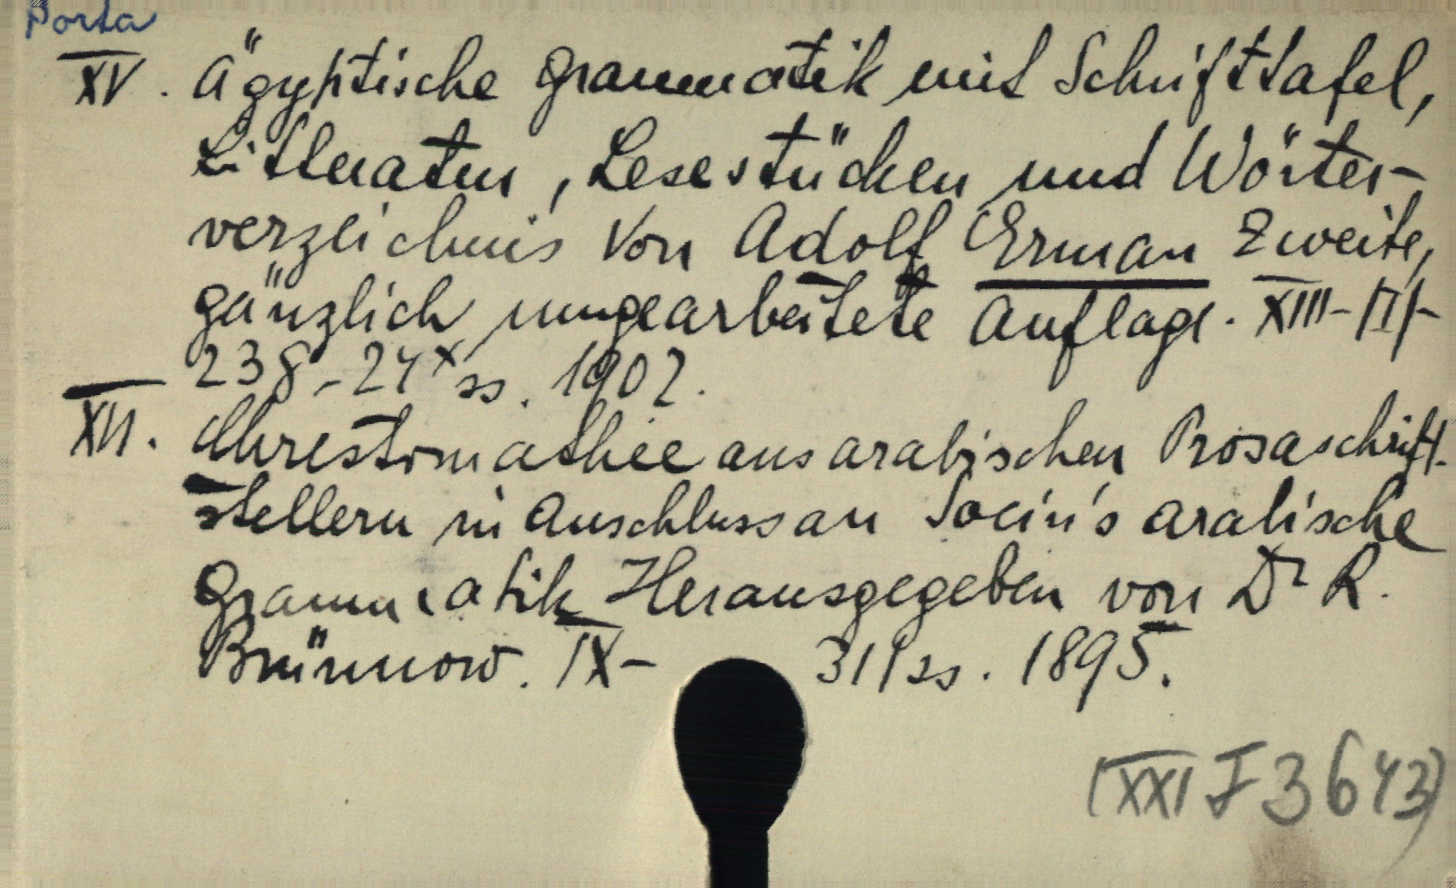 Porta
XV. Ägyptische Grammatik mit Schrifttafel,
Litteratur, Lesestücken und Wörter-
verzeichnis von Adolf Erman Zweite,
gänzlich umgearbeitete Auflage. XIII-/I/-
238-24x ss. 1902.
XVI. Chrestomathie aus arabischen Prosaschrift-
stellern in Anschluss an Socin's arabische
Grammatik Herausgegeben von Dr R.
Brünnow. IX- 311 ss. 1895.
(XXI J 3643)